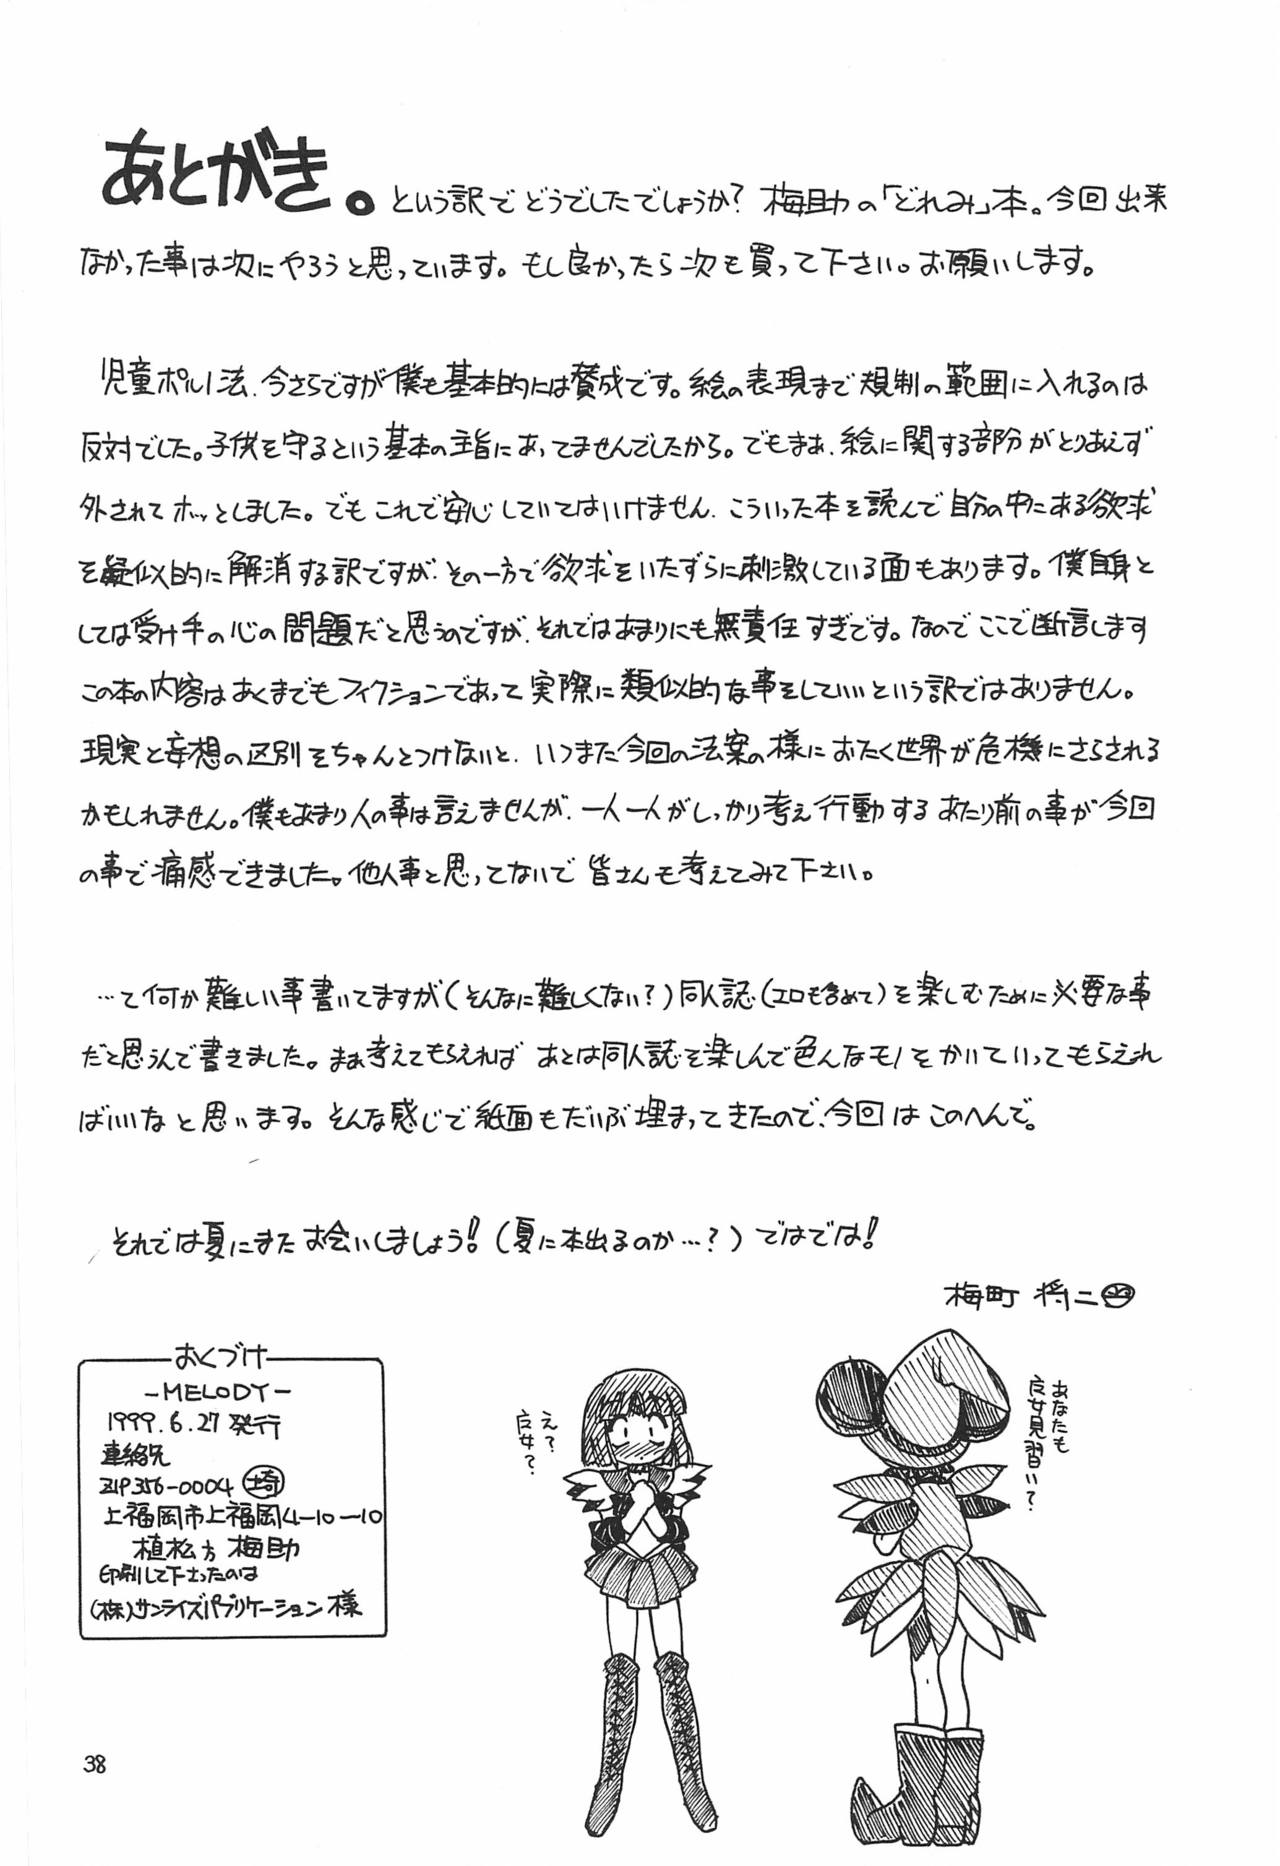 あとがき。という訳でどうでしたでしょうか?梅助の「どれみ」本。今回出来
なかった事は次にやろうと思っています。もし良かったら次も買って下さい。お願いします。
児童ポルノ法、今さらですが僕も基本的には賛成です。絵の表現まで規制の範囲に入れるのは
反対でした。子供を守るという基本の主旨にあってませんでしたから。でもまぁ、絵に関する部分がとりあえず
外されてホッとしました。でもこれで安心していてはいけません、こういった本を読んで自分の中にある欲求
を疑似的に解消する訳ですが、その一方で欲求をいたずらに刺激している面もあります。僕自身と
しては受け手の心の問題だと思うのですが、それではあまりにも無責任すぎです。なのでここで断言します
この本の内容はあくまでもフィクションであって実際に類似的な事をしていいという訳ではありません。
現実と妄想の区別をちゃんとつけないと、いつまた今回の法案の様におたく世界が危機にさらされる
かもしれません。僕もあまり人の事は言えませんが、一人一人がしっかり考え行動するあたり前の事が今回
の事で痛感できました。他人事と思ってないで皆さんも考えてみて下さい。
…て何か難しい事書いてますが(そんなに難しくない?)同人誌(エロも含めて)を楽しむために必要な事
だと思うんで書きました。まぁ考えてもらえればあとは同人誌を楽しんで色んなモノをかいていってもらえれ
ばいいなと思います。そんな感じで紙面もだいぶ埋まってきたので、今回はこのへんで。
それでは夏にまたお会いしましょう!(夏に本出るのか…?)ではでは!
梅町 将二
おくづけ
-MELODY-
1999.6.27発行
連絡先
ZIP356-0004 埼
上福岡市上福岡4-10-10
植松方 梅助
印刷して下さったのは
(株)サンライズパブリケーション様
え?
魔女?
あなたも
魔女見習い?
38